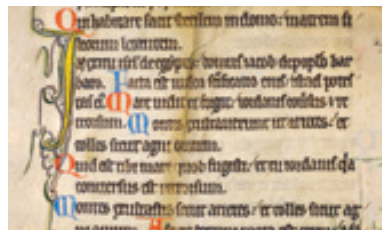 Qui habitare facit sterilem in domo: matrem fi
liorum letantem.
In exitu isrl de egypto: domus iacob de populo bar
baro. Facta est iudea sanctificatio eius: isrl potes
tas eius. Mare uidit et fugit: iordanis conuersus est re
trorsum. Montes exultauerunt ut arietes: et
colles sicut agni ouium.
Quid est tibi mare quod fugisti: et tu iordanis quia
conuersus es retrorsum.
Montes exultastis sicut arietes: et colles sicut ag
ni ouium.